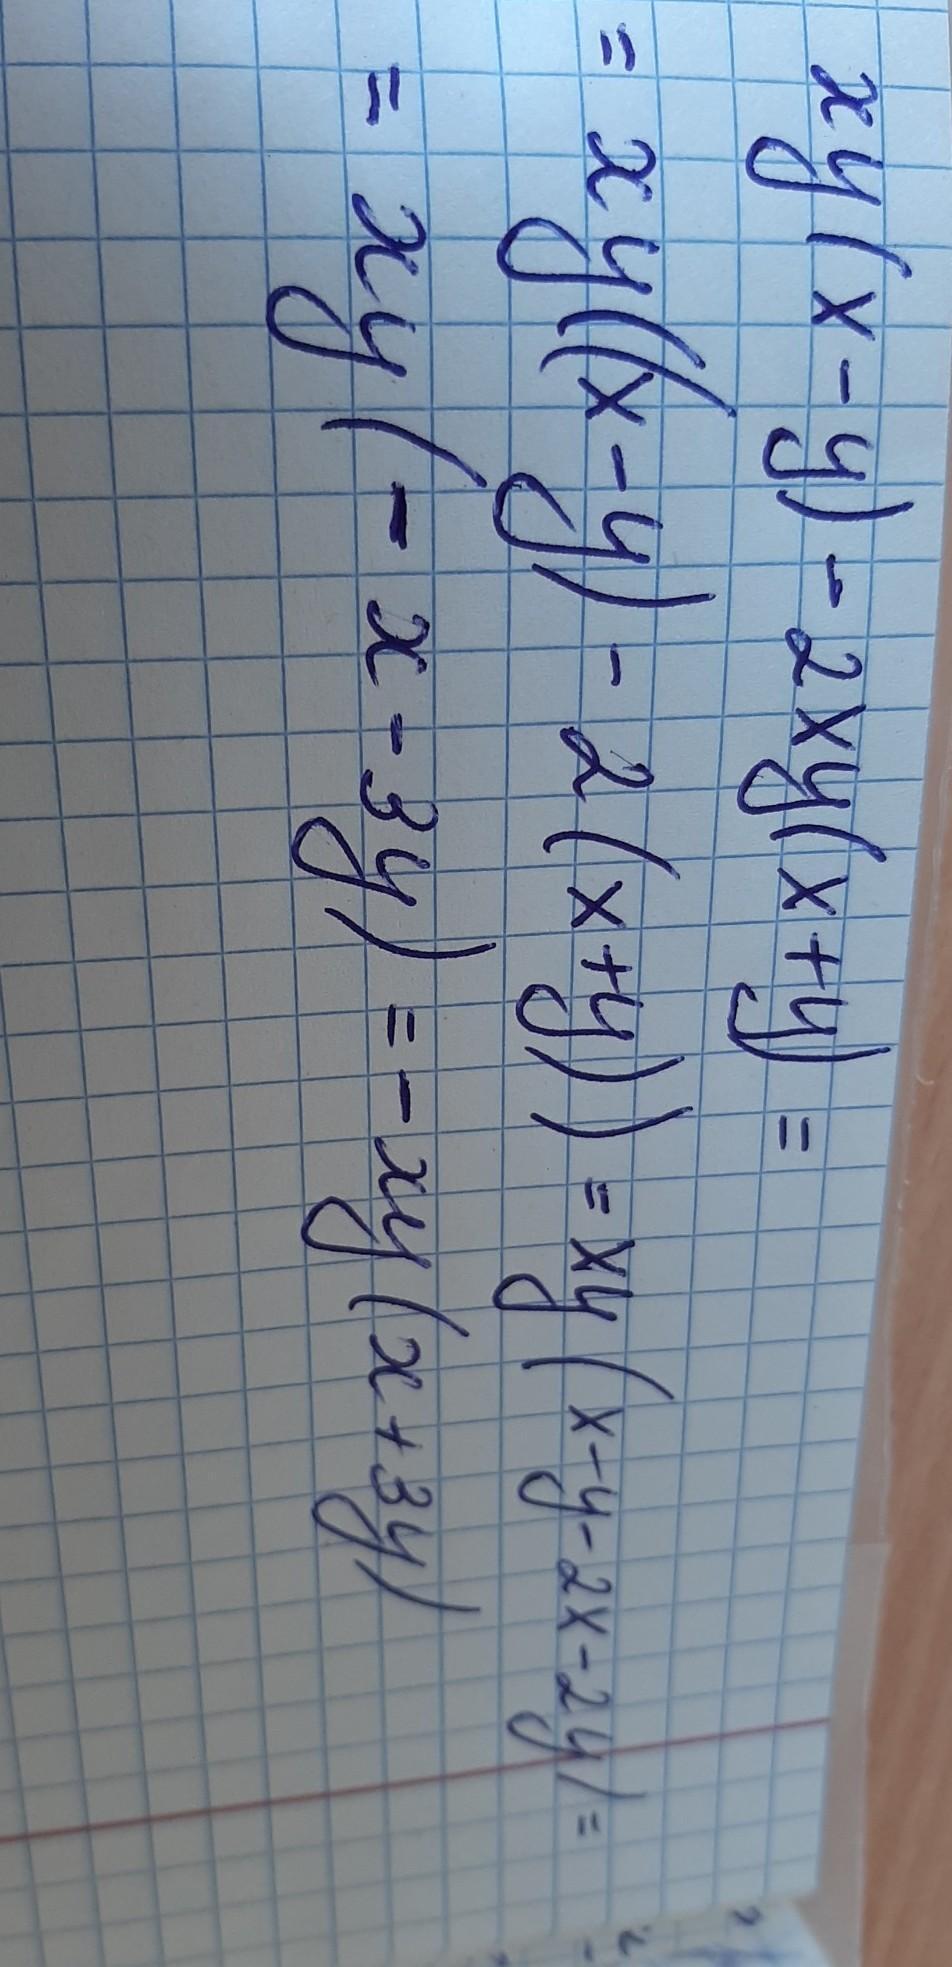 xy(x-y)-2xy(x+y)=
=xy((x-y)-2(x+y))=xy(x-y-2x-2y)=
=xy(-x-3y)=-xy(x+3y)